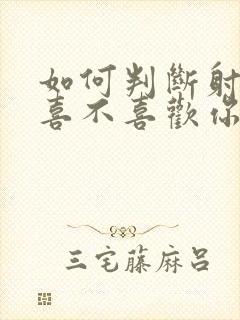 如何判斷射
喜不喜歡你
三宅藤麻呂